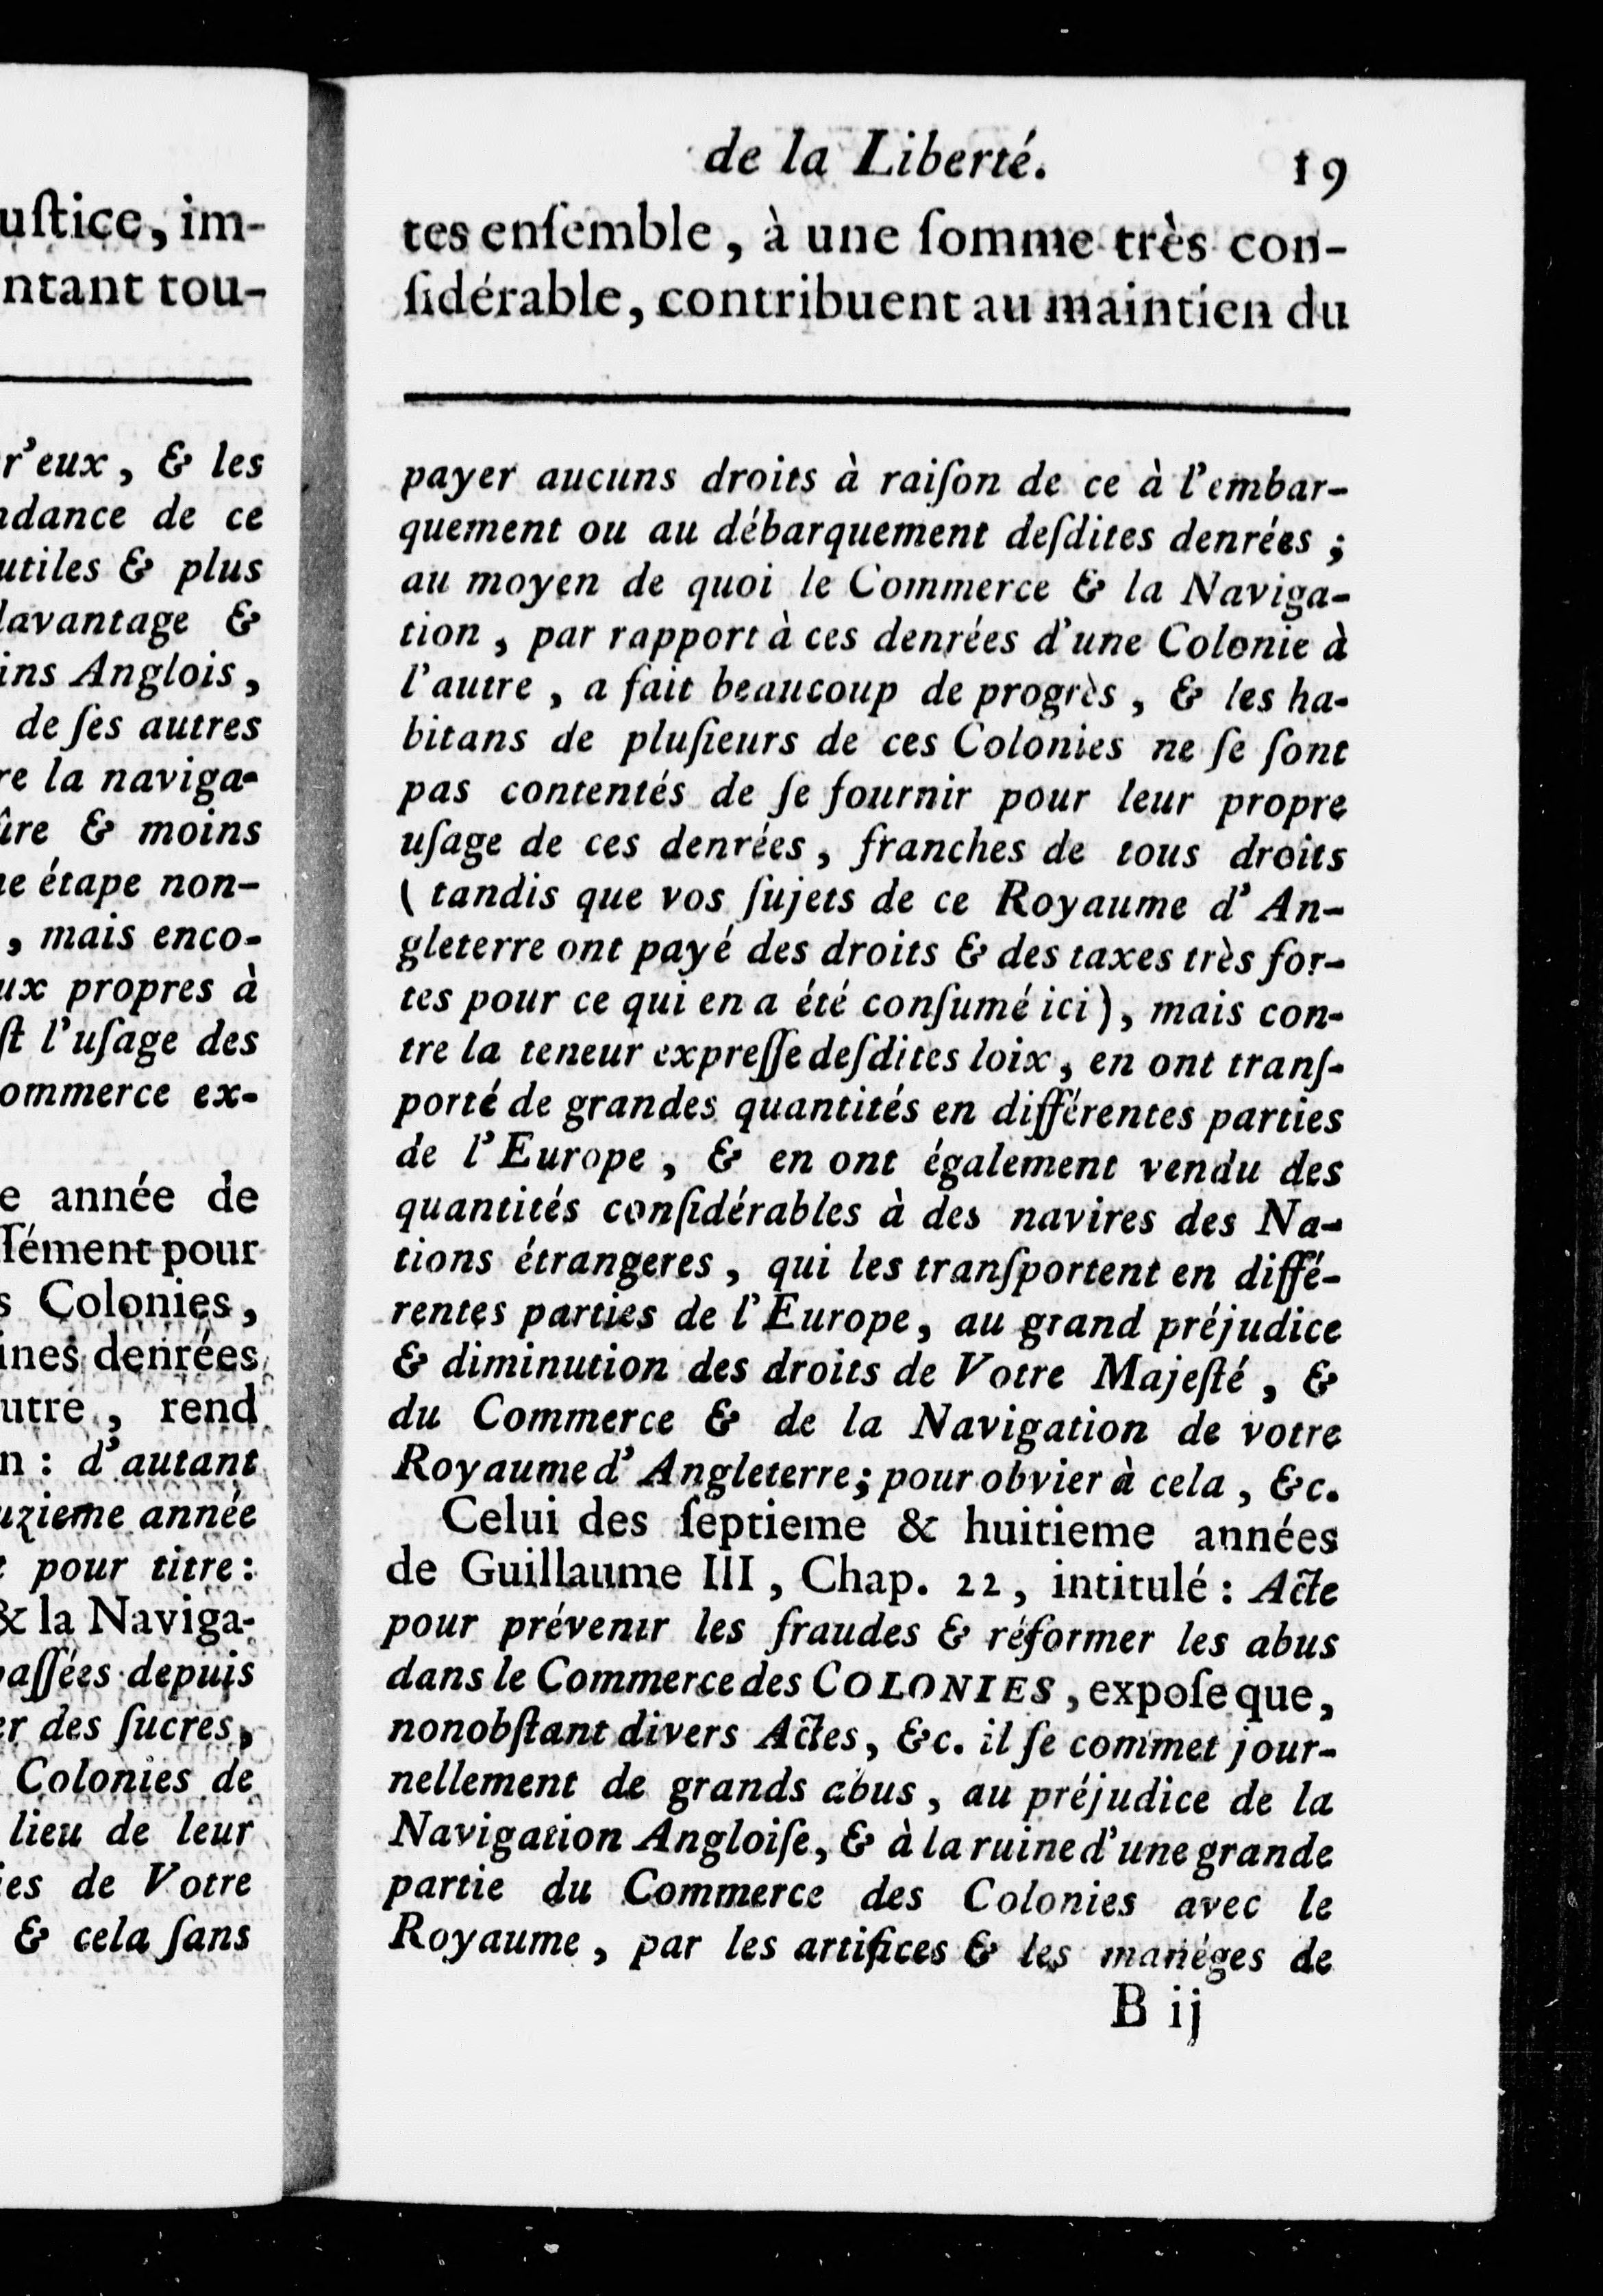 uſtice, im-
ntant tou-
r'eux, & les
ndance de ce
utiles & plus
davantage &
ins Anglois,
de ſes autres
re la naviga-
ûre & moins
ne étape non-
, mais enco-
ux propres à
ſt l'uſage des
ommerce ex-
e année de
ſſément pour
s Colonies,
ines denrées
utre, rend
n : d'autant
uzieme année
t pour titre :
& la Naviga-
paſſées depuis
er des ſucres,
Colonies de
lieu de leur
ies de Votre
& cela ſans
de la Liberté. 19
tes enſemble, à une ſomme très con-
ſidérable, contribuent au maintien du
payer aucuns droits à raiſon de ce à l'embar-
quement ou au débarquement deſdites denrées ;
au moyen de quoi le Commerce & la Naviga-
tion, par rapport à ces denrées d'une Colonie à
l'autre, a fait beaucoup de progrès, & les ha-
bitans de pluſieurs de ces Colonies ne ſe ſont
pas contentés de ſe fournir pour leur propre
uſage de ces denrées, franches de tous droits
( tandis que vos ſujets de ce Royaume d'An-
gleterre ont payé des droits & des taxes très for-
tes pour ce qui en a été conſumé ici), mais con-
tre la teneur expreſſe deſdites loix, en ont tranſ-
porté de grandes quantités en différentes parties
de l'Europe, & en ont également vendu des
quantités conſidérables à des navires des Na-
tions étrangeres, qui les tranſportent en diffé-
rentes parties de l'Europe, au grand préjudice
& diminution des droits de Votre Majeſté, &
du Commerce & de la Navigation de votre
Royaume d'Angleterre ; pour obvier à cela, &c.
Celui des ſeptieme & huitieme années
de Guillaume III, Chap. 22, intitulé : Acte
pour prévenir les fraudes & réformer les abus
dans le Commerce des COLONIES, expoſe que,
nonobſtant divers Actes, &c. il ſe commet jour-
nellement de grands abus, au préjudice de la
Navigation Angloiſe, & à la ruine d'une grande
partie du Commerce des Colonies avec le
Royaume, par les artifices & les manéges de
B ij